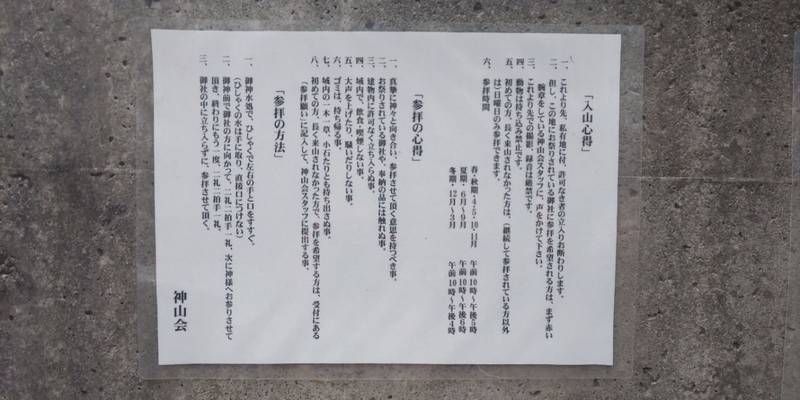 「入山心得」
一、これより先、私有地に付、許可なき者の立入りお断わりします。
二、但し、この地にお祭りされている御社に参拝を希望される方は、まず赤い
腕章をしている神山会スタッフに、声をかけて下さい。
三、これより先での撮影、録音は厳禁です。
四、動物は持ち込み禁止です。
五、初めての方、長く来山されなかった方は、（継続して参拝されている方以外
は）日曜日のみ参拝できます。
六、参拝時間
春・秋期・4・5・10・11月 午前10時〜午後5時
夏期・6月〜9月 午前10時〜午後6時
冬期・12月〜3月 午前10時〜午後4時
「参拝の心得」
一、真摯に神々と向き合い、参拝させて頂く意思を持つべき事。
二、お祭りされている御社や、奉納の品には触れぬ事。
三、建物内に許可なく立ち入らぬ事。
四、域内で、飲食・喫煙しない事。
五、大声を上げたり、騒いだりしない事。
六、ゴミは、持ち帰る事。
七、域内の一木一草、小石たりとも持ち出さぬ事。
八、初めての方、長く来山されなかった方で、参拝を希望する方は、受付にある
「参拝願い」に記入して、神山会スタッフに提出する事。
「参拝の方法」
一、御神水処で、ひしゃくで左右の手と口をすすぐ。
（ひしゃくの水は手に取り、直接口につけない）
二、御神前で御社の方に向かって、二礼二拍手一礼、次に神様へお参りさせて
頂き、終わりにもう一度、二礼二拍手一礼。
三、御社の中に立ち入らずに、参拝させて頂く。
神山会